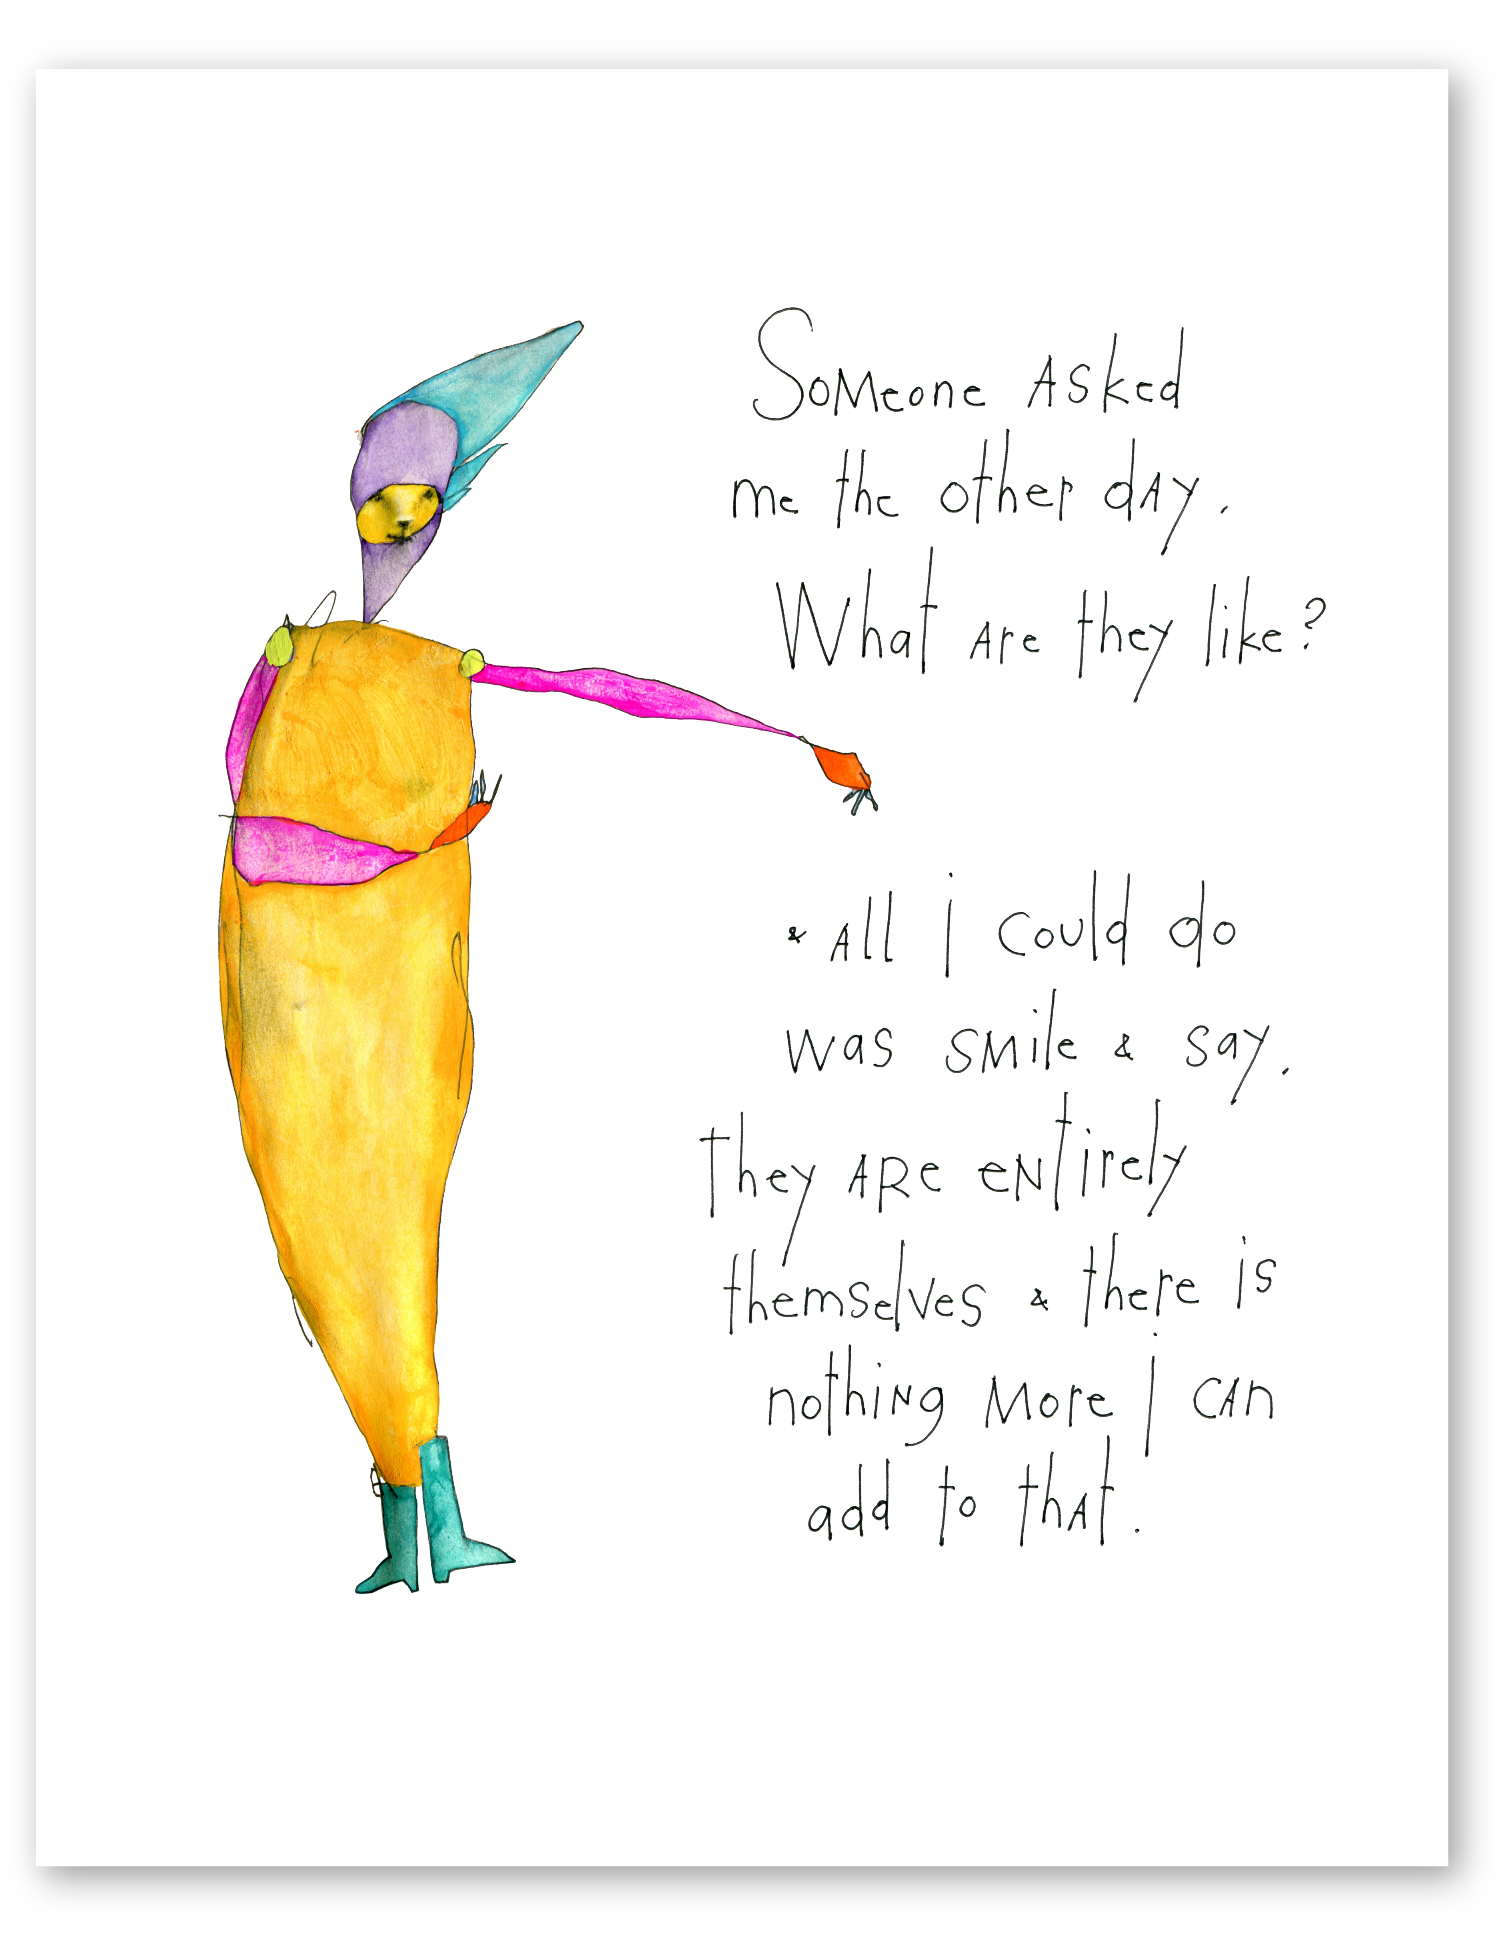 Someone asked
me the other day.
What are they like?
& all i could do
was smile & say.
they are entirely
themselves & there is
nothing more i can
add to that.